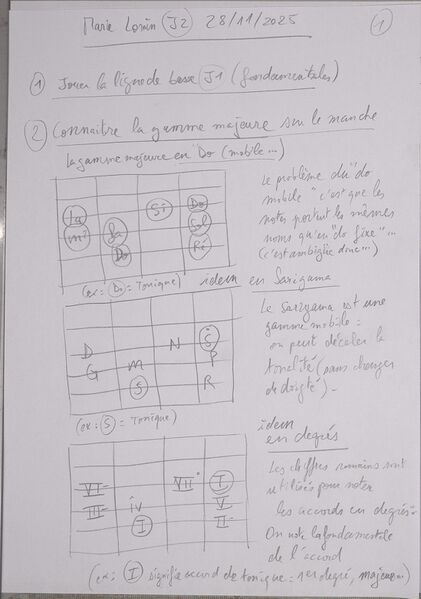 Marie Lorin J2 28/11/2025
1
① Jouer la ligne de basse J1 (fondamentales)
② Connaître la gamme majeure sur le manche
La gamme majeure en Do (mobile...)
Si Do
La Fa Sol
mi Do Ré
(ex: Do = Tonique)
Le problème du "do
mobile" c'est que les
notes portent les mêmes
noms qu'en "do fixe"...
(c'est ambigüe donc...)
idem en Sarigama
D N Ṡ
G m P
S R
(ex: S = Tonique)
Le Sarigama est une
gamme mobile :
on peut décaler la
tonalité (sans changer
de doigté).
idem
en degrés
VI VII° I
III iv V
I II
Les chiffres romains sont
utilisés pour noter
les accords en degrés.
On note la fondamentale
de l'accord
(ex: I signifie accord de tonique = 1er degré, majeur...)